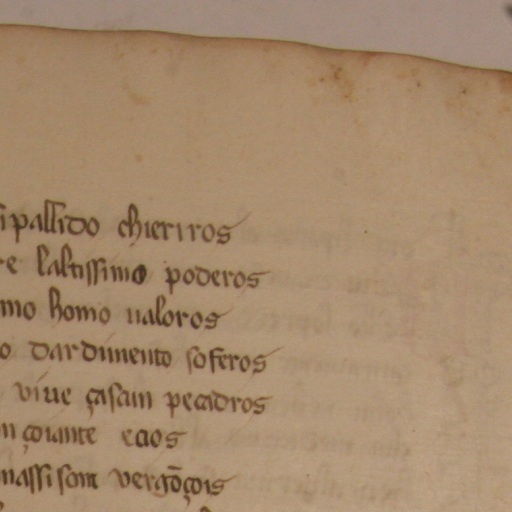 pallido chieriros
laltissimo poderos
mo homo ualoros
o dardimento soferos
viue çascun pecadros
çoiante
massi som vergōçois